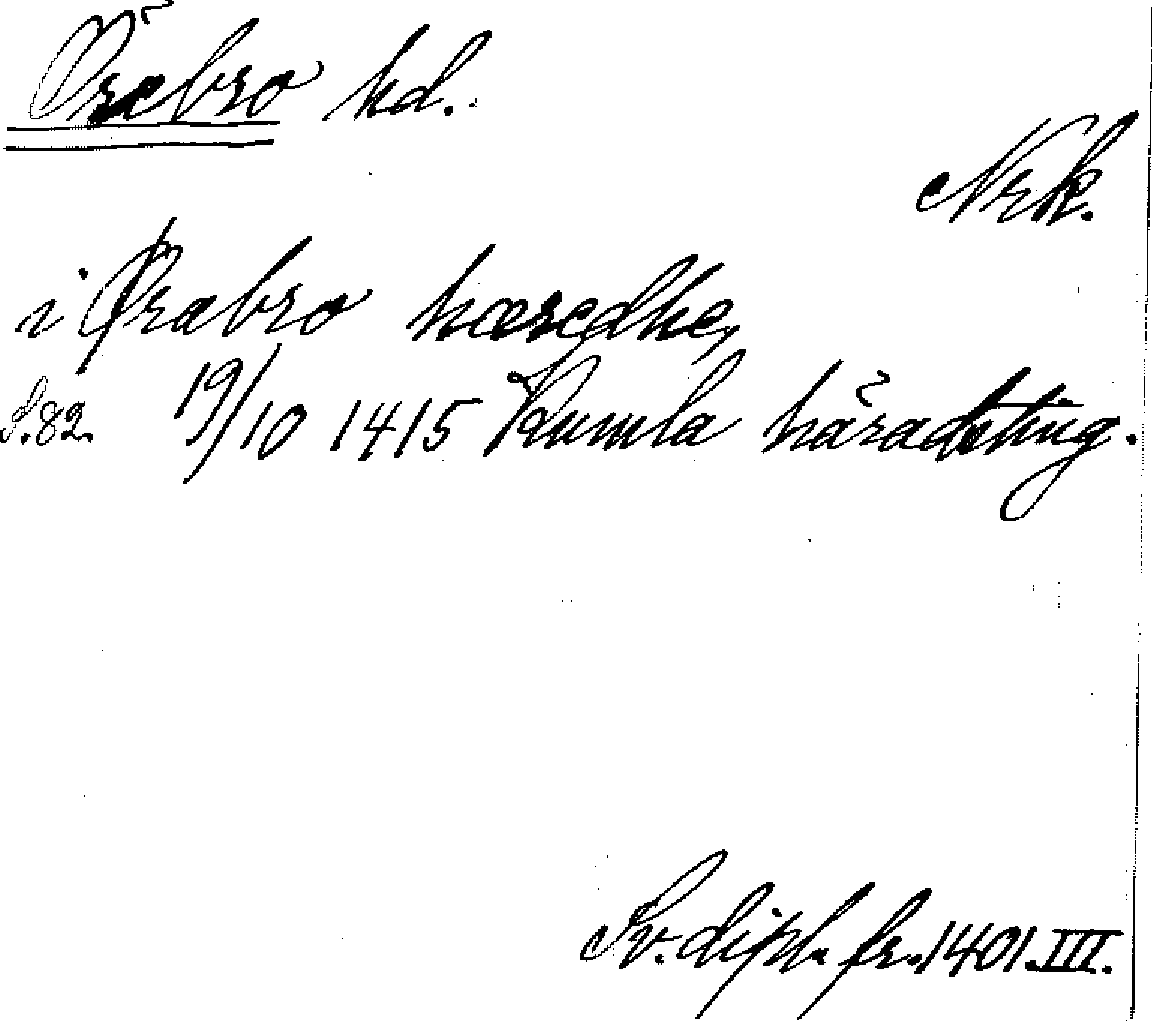 Örebro hd.
Nrk.
i Ørabro hæredhe,
S. 82. 19/10 1415 Kumla häradsting.
Sv. dipl. fr. 1401. III.